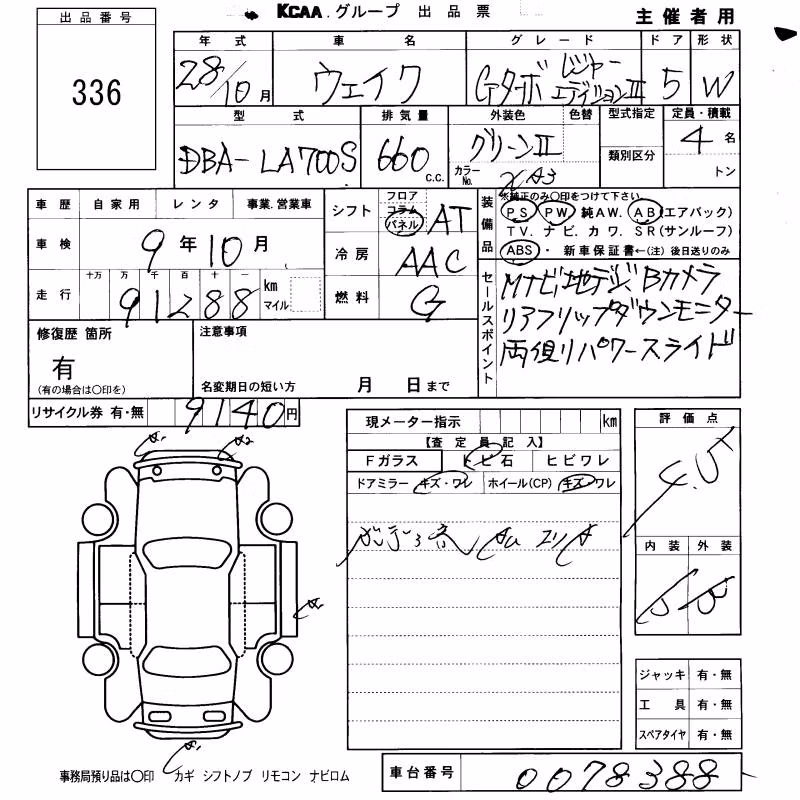 KCAA グループ 出品票
主催者用
出品番号
336
年式 車名 グレード ドア 形状
28/10月 ウェイク Gターボ レジャーエディションⅢ 5 W
型式 排気量 外装色 色替 型式指定 定員・積載
DBA-LA700S 660 c.c. グリーンⅡ 類別区分 4名
カラーNo. トン
車歴 自家用 レンタ 事業.営業車
シフト フロア コラム パネル AT
装備品 ※純正のみ〇印をつけて下さい
PS PW 純AW. AB(エアバック)
TV. ナビ. カワ. SR(サンルーフ)
ABS ・ 新車保証書←(注) 後日送りのみ
車検 9年10月
冷房 AAC
走行 十万 万 千 百 十 一 km マイル
91288
燃料 G
セールスポイント
Mナビ地デジBカメラ
リアフリップダウンモニター
両側リパワースライド
修復歴 箇所
有
(有の場合は〇印を)
注意事項
名変期日の短い方 月 日まで
リサイクル券 有・無 9140円
現メーター指示 km
【査定員記入】
Fガラス トビ石 ヒビワレ
ドアミラー キズ・ワレ ホイール(CP) キズ・ワレ
評価点
4.5
内装 外装
ジャッキ 有・無
工具 有・無
スペアタイヤ 有・無
事務局預り品は〇印 カギ シフトノブ リモコン ナビロム
車台番号 0078388